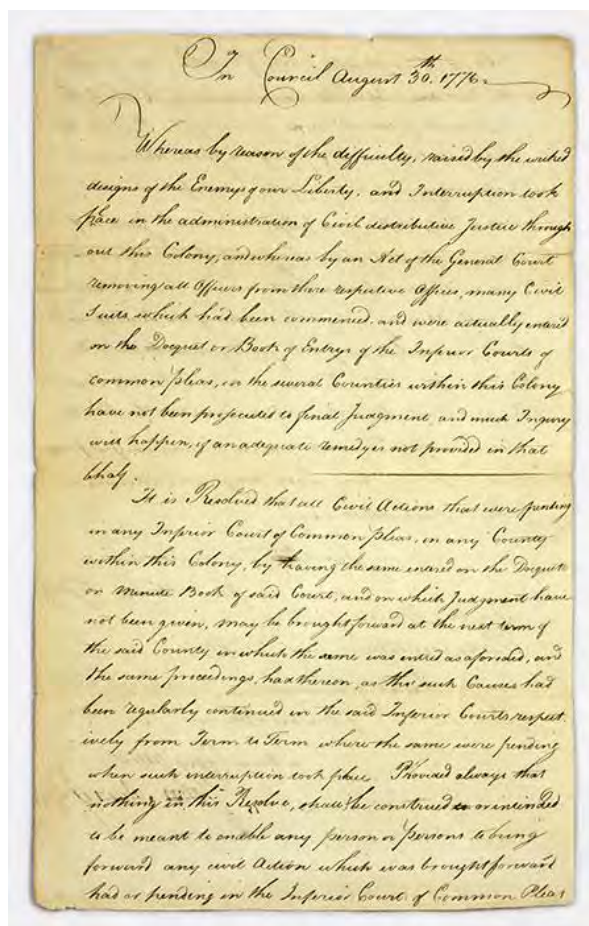 In Council August 30.th 1776.
Whereas by reason of the difficulty, raised by the wicked
designs of the Enemys of our Liberty, and Interruption took
place in the administration of Civil distributive Justice through
out this Colony, and whereas by an Act of the General Court
removing all Officers from there respective Offices, many Civil
Suits, which had been commenced, and were actually entered
on the Docquet or Book of Entrys of the Inferior Courts of
common pleas, in the several Counties within this Colony
have not been prosecuted to final Judgment and much Injury
will happen, if an adequate remedy is not provided in that
bhalf.
It is Resolved that all Civil Actions that were pending
in any Inferior Court of Common pleas, in any County
within this Colony, by having the same entered on the Docquet
or Minute Book of said Court, and on which Judgment have
not been given, may be brought forward at the next term of
the said County in which the same was entred as aforesaid, and
the same proceedings, had thereon, as tho' such Causes had
been regularly continued in the said Inferior Courts respect
ively from Term to Term where the same were pending
when such interruption took place. Provided always that
nothing in this Resolve, shall be construed or intended
to be meant to enable any person or persons to bring
forward any civil Action which was brought forward
had or pending in the Inferior Court of Common Pleas